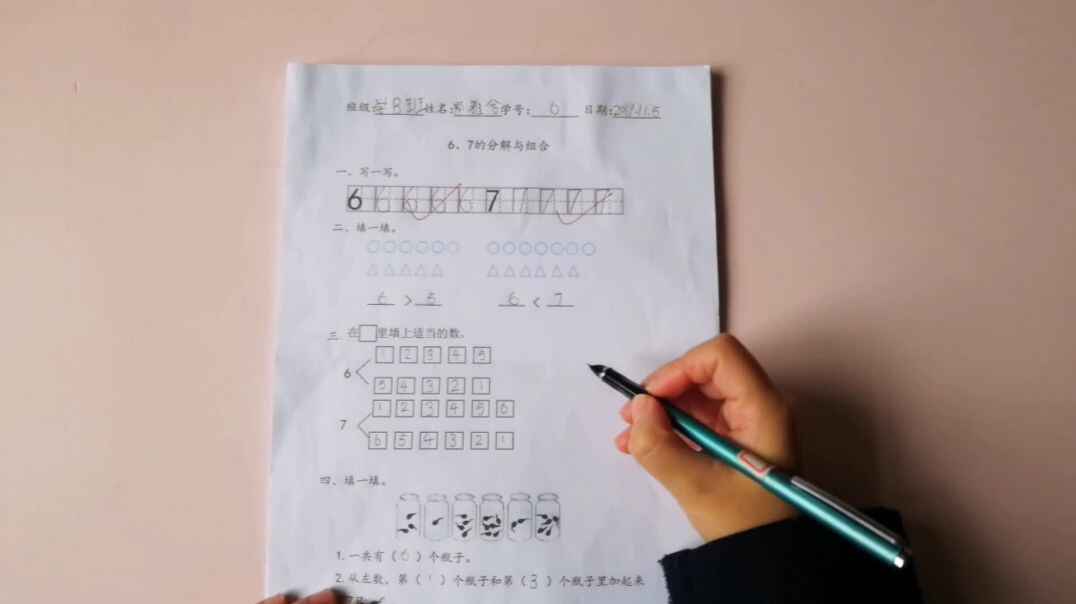 班级: 学前班 姓名: 学号: 6 日期: 2021.11.5
6、7的分解与组合
一、写一写。
6 6 6 6 6 7 7 7 7 7
二、填一填。
6 > 5 6 < 7
三 在□里填上适当的数。
1 2 3 4 5
6
5 4 3 2 1
1 2 3 4 5 6
7
6 5 4 3 2 1
四、填一填。
1.一共有(6)个瓶子。
2.从左数，第(1)个瓶子和第(3)个瓶子里加起来